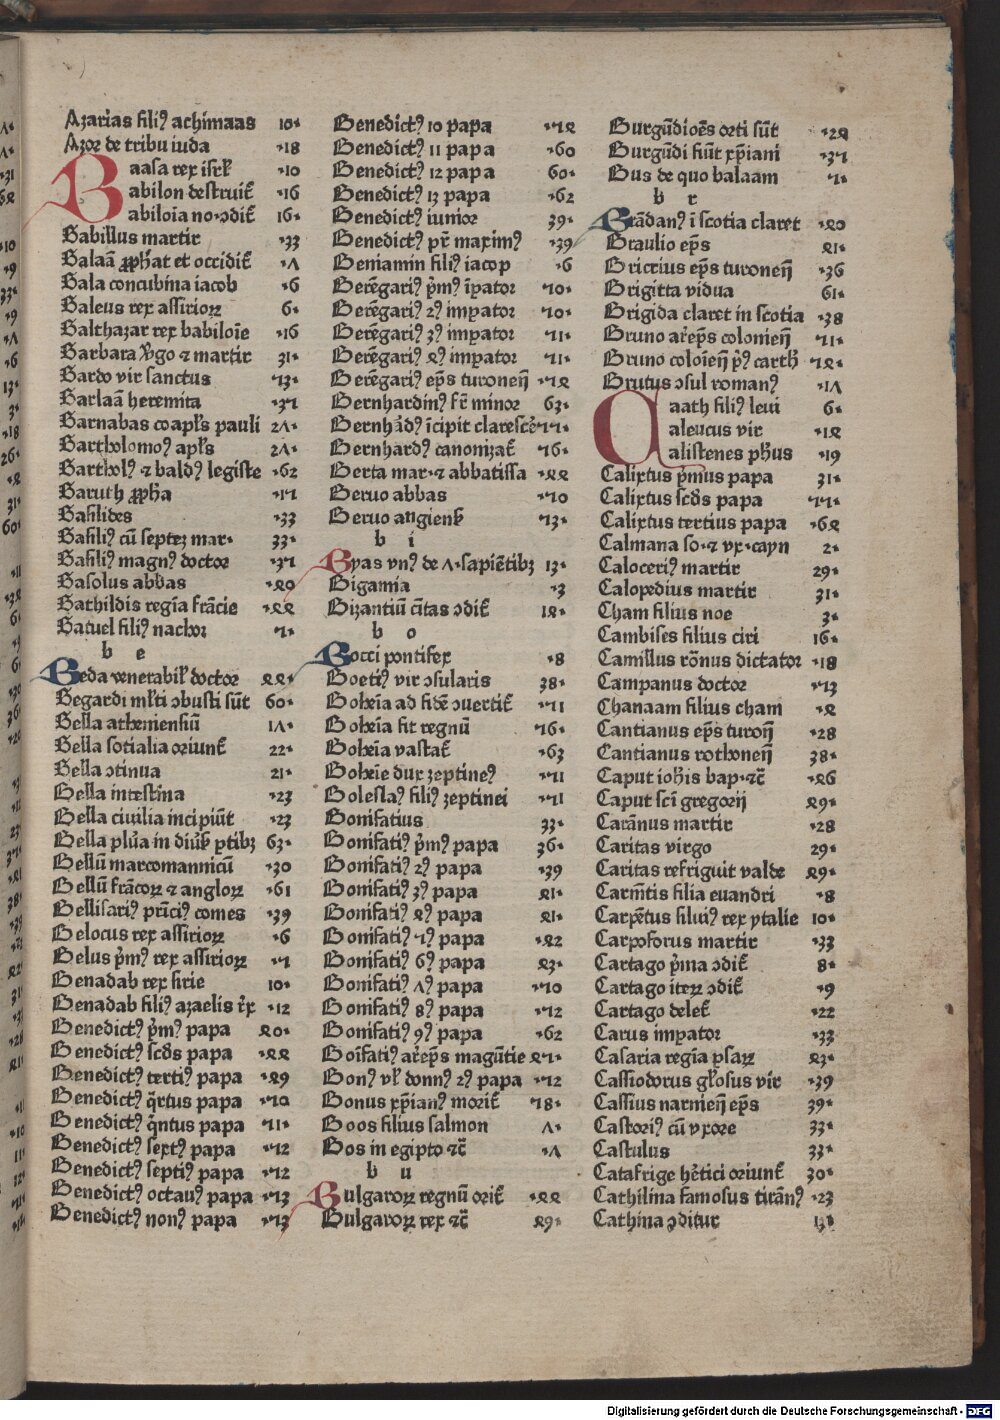 Azarias filiꝰ achimaas 10·
Azor de tribu iuda ·18
Baasa rex isrł ·10
Babilon destruiť ·16
Babiloia no·ↄdiť 16·
Babillus martir ·33
Balaā ꝓphat et occidiť ·Λ
Bala concubina iacob ·6
Baleus rex assirioꝝ 6·
Balthazar rex babiloīe ·16
Barbara v̓go ⁊ martir 31·
Bardo vir sanctus ·73·
Barlaā heremita ·37
Barnabas coapl̄s pauli 2Λ·
Bartholomoꝰ apl̄s 2Λ·
Bartholꝰ ⁊ baldꝰ legiste ·62
Baruth ꝓpha ·17
Basilides ·33
Basiliꝰ cū septez mar· 33·
Basiliꝰ magnꝰ doctor ·37
Basolus abbas ·40
Bathildis regīa frācie ·44
Batuel filiꝰ nachor 7·
b e
Beda venerabił doctor 44·
Begardi ml̄ti ↄbusti sūt 60·
Bella atheniensiū 1Λ·
Bella sotialia oriunť 22·
Bella ↄtinua 21·
Bella intestina ·23
Bella ciuilia incipiūt ·23
Bella plu̓a in diu̓ẜ ꝑtibꝫ 63·
Bellū marcomannicū ·30
Bellū frācoꝝ ⁊ angloꝝ ·61
Bellisariꝰ prīciꝰ comes ·39
Belocus rex assirioꝝ ·6
Belus p̓mꝰ rex assirioꝝ ·7
Benadab rex sirie 10·
Benadab filiꝰ azaelis r̄x ·12
Benedictꝰ p̓mꝰ papa 40·
Benedictꝰ scd̄s papa ·44
Benedictꝰ tertiꝰ papa ·49
Benedictꝰ q̄rtus papa ·70
Benedictꝰ q̄ntus papa 71·
Benedictꝰ sextꝰ papa ·72
Benedictꝰ septiꝰ papa ·72
Benedictꝰ octauꝰ papa ·73
Benedictꝰ nonꝰ papa ·73
Benedictꝰ 10 papa ·74
Benedictꝰ 11 papa ·60
Benedictꝰ 12 papa 60·
Benedictꝰ 13 papa ·62
Benedictꝰ iunior 39·
Benedictꝰ pr̄ maximꝰ ·39
Beniamin filiꝰ iacop ·6
Berēgariꝰ p̓mꝰ īꝑator 70·
Berēgariꝰ 2ꝰ imꝑator 70·
Berēgariꝰ 3ꝰ imꝑator 71·
Berēgariꝰ 4ꝰ imꝑator 71·
Berēgariꝰ ep̄s turoneñ ·74
Bernhardinꝰ fr̄ minor 63·
Bernhādꝰ īcipit clarescē 77·
Bernhardꝰ canonizať 76·
Berta mar·⁊ abbatissa ·44
Beruo abbas ·70
Beruo angienẜ 73·
b i
Byas vnꝰ de Λ·sapiētibꝫ 13·
Bigamia ·3
Bizantiū cītas ↄdiť 14·
b o
Bocci pontifex ·8
Boetiꝰ vir ↄsularis 38·
Bohēia ad fidē ↄuertiť ·71
Bohēia fit regnū ·76·
Bohēia vastať ·63
Bohēie dux zeptineꝰ ·71
Boleslaꝰ filiꝰ zeptinei ·71
Bonifatius 33·
Bonifatiꝰ p̓mꝰ papa 36·
Bonifatiꝰ 2ꝰ papa ·39
Bonifatiꝰ 3ꝰ papa 41·
Bonifatiꝰ 4ꝰ papa 41·
Bonifatiꝰ 7ꝰ papa ·42
Bonifatiꝰ 6ꝰ papa 43·
Bonifatiꝰ Λꝰ papa ·70
Bonifatiꝰ 8ꝰ papa ·72
Bonifatiꝰ 9ꝰ papa ·62
Boīfatiꝰ ar̄ep̄s magūtie 47·
Bonꝰ vł donnꝰ 2ꝰ papa ·72
Bonus xp̄ianꝰ moriť 78·
Boos filius salmon Λ·
Bos in egipto ⁊c̄ ·Λ
b u
Bulgaroꝝ regnū oriť ·44
Bulgaroꝝ rex ⁊c̄ 49·
Burgūdioēs orti sūt ·24
Burgūdi fiūt xp̄iani ·37
Bus de quo balaam 7·
b r
Brādanꝰ ī scotia claret ·40
Braulio ep̄s 41·
Briccius ep̄s turoneñ ·36
Brigitta vidua 61·
Brigida claret in scotia ·38
Bruno ar̄ep̄s colonieñ 71·
Bruno coloīeñ p̓ꝰ carth̄ 74·
Brutus ↄsul romanꝰ ·1Λ
Caath filiꝰ leui 6·
Caleucus vir ·14
Calistenes ph̄us ·19
Calixtus p̓mus papa 31·
Calixtus scd̄s papa 77·
Calixtus tertius papa ·64
Calmana so·⁊ vx·cayn 2·
Caloceriꝰ martir 29·
Calopedius martir 31·
Cham filius noe 3·
Cambises filius ciri 16·
Camillus rōnus dictator ·18
Campanus doctor ·73
Chanaam filius cham ·4
Cantianus ep̄s turoñ ·28
Cantianus rothoneñ 38·
Caput ioh̄is bap·⁊c̄ ·46
Caput sc̄i gregorij 49·
Carānus martir ·28
Caritas virgo 29·
Caritas refriguit valde 49·
Carm̄tis filia euandri ·8
Carpētus filuiꝰ rex ytalie 10·
Carpoforus martir ·33
Cartago p̓ma ↄdiť 8·
Cartago iteꝝ ↄdiť ·9
Cartago deleť ·22
Carus imꝑator ·33
Casaria regīa ꝑsaꝝ 43·
Cassiodorus gl̄osus vir ·39
Cassius narnieñ ep̄s 39·
Castoriꝰ cū vxore 33·
Castulus 33·
Catafrige he̓tici oriunť 30·
Cathilina famosus tirānꝰ ·23
Cathina ↄditur 13·
Digitalisierung gefördert durch die Deutsche Forschungsgemeinschaft - DFG